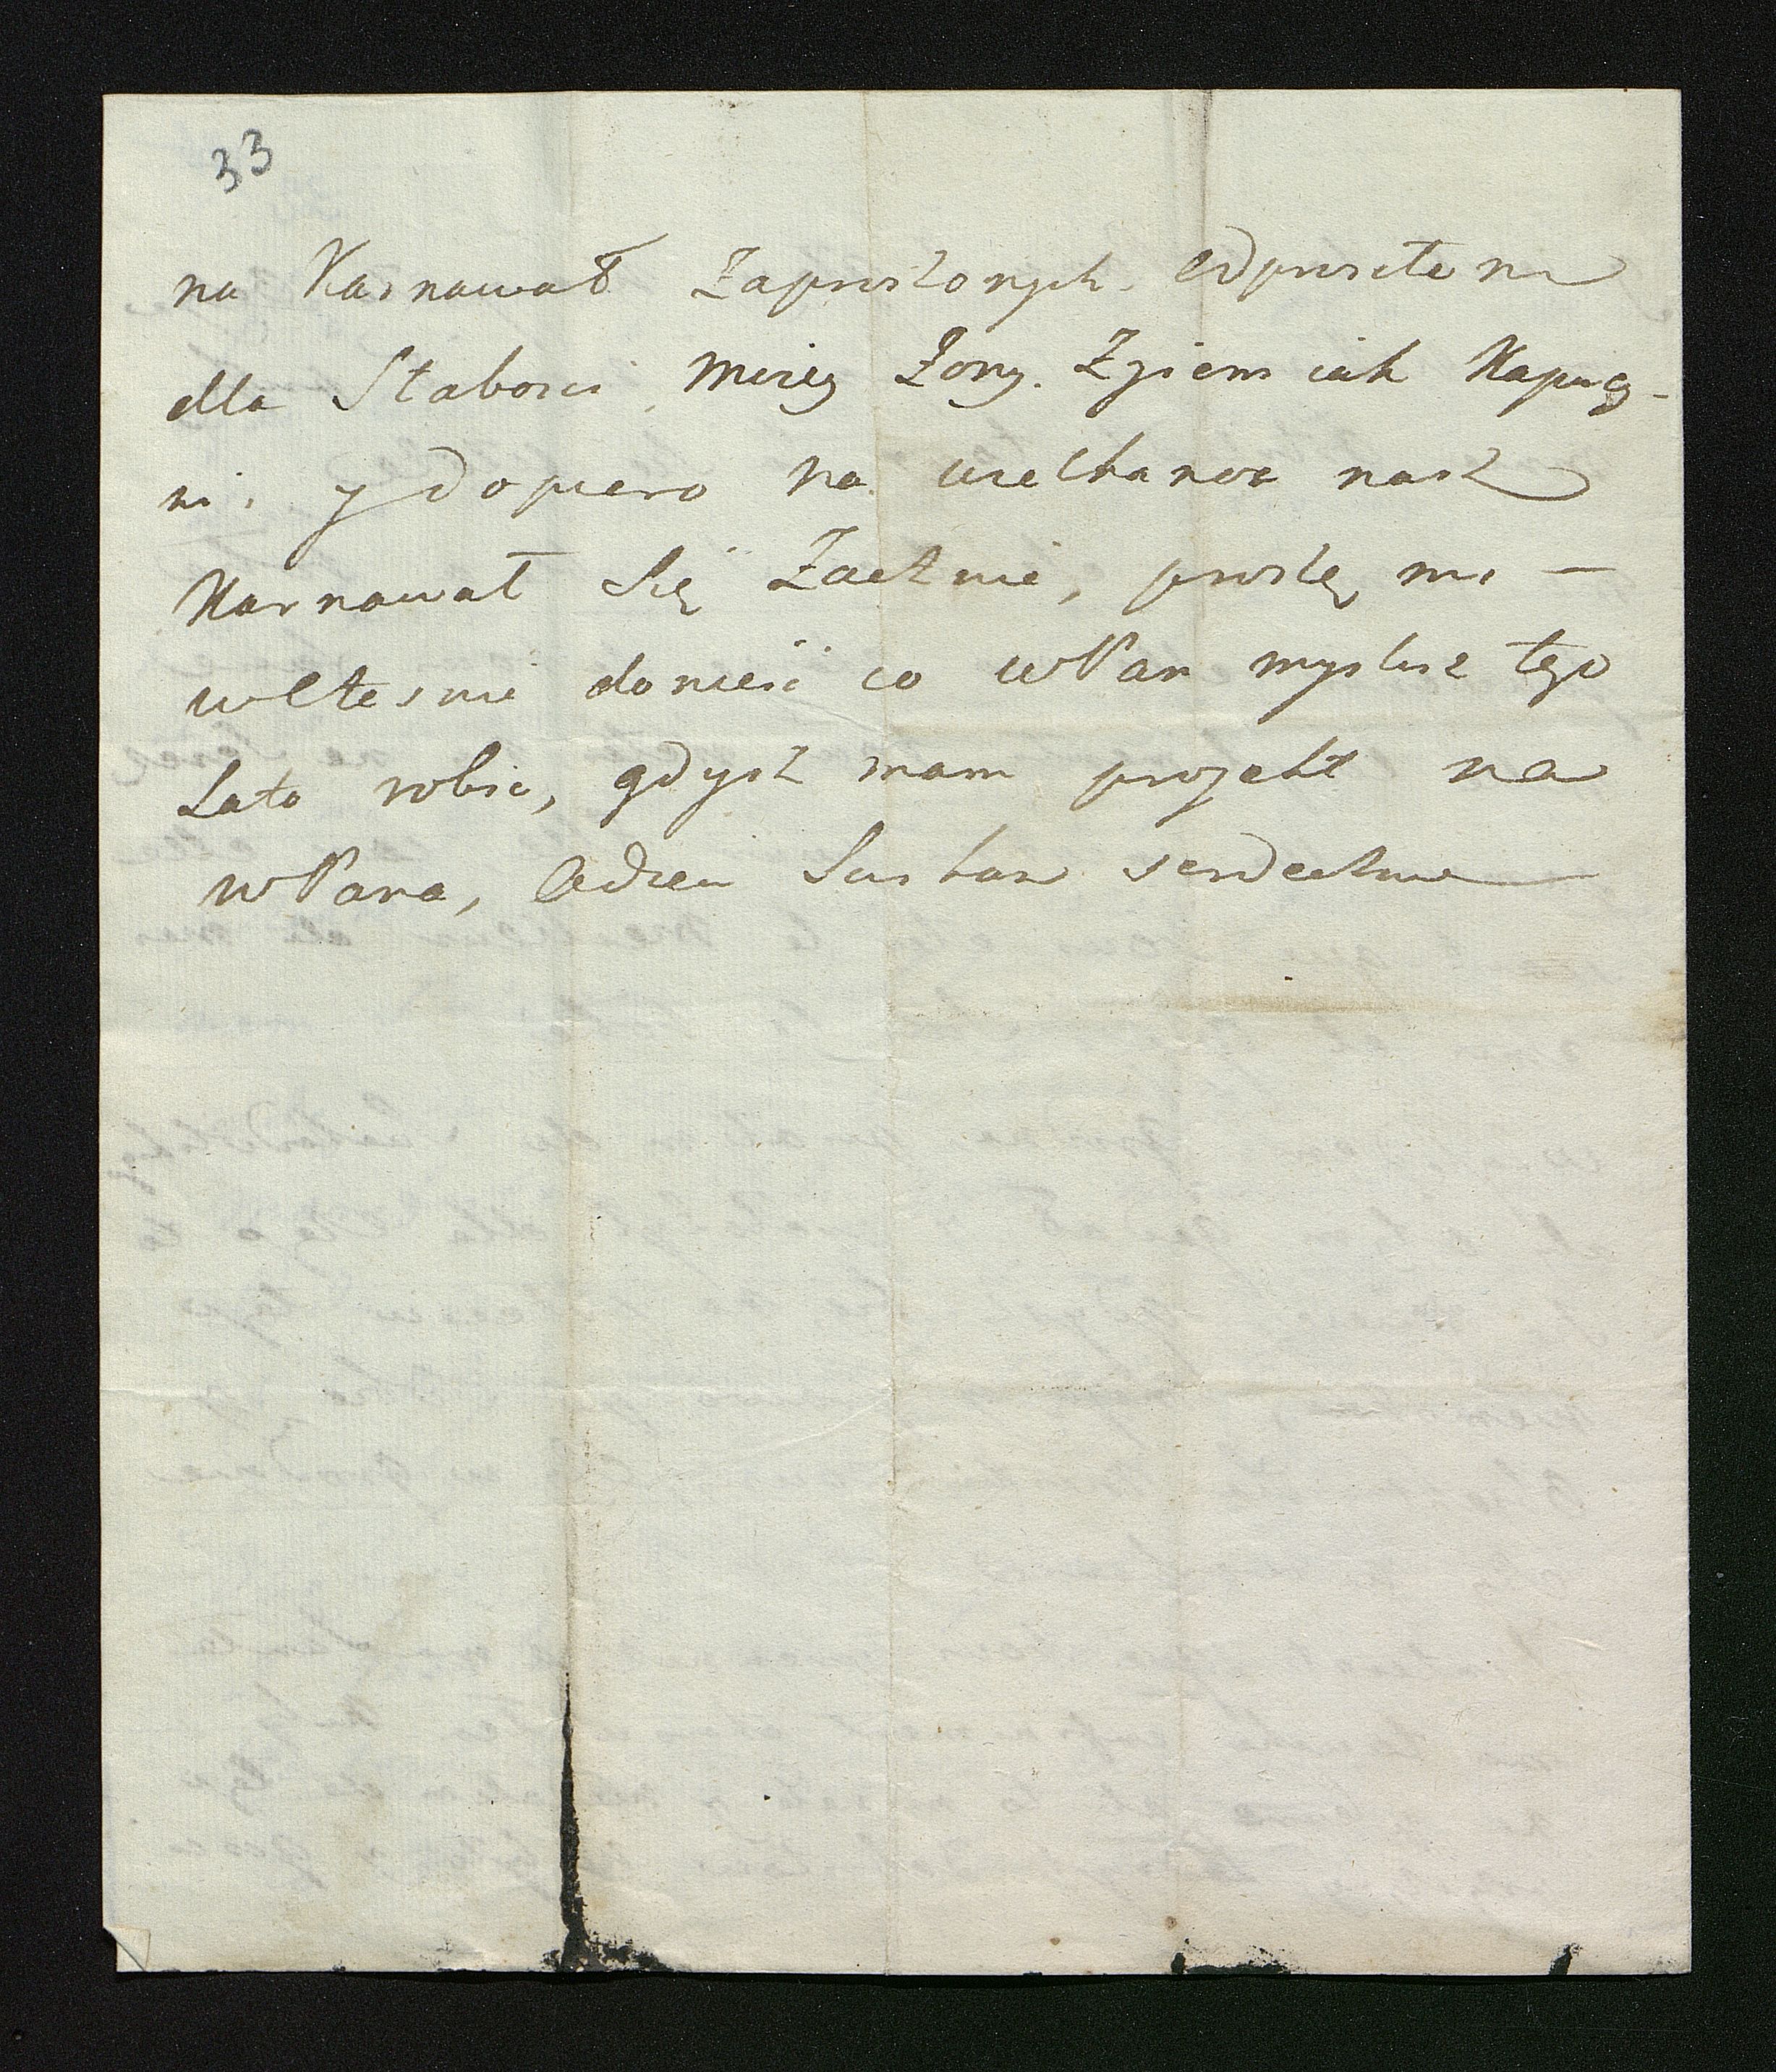 33
na Karnawał Zaproszonych. odprosiłem
dla Słabosci Moiey Zony. Zyiem iak Kapucy-
ni, y dopiero na Wielkanoc nasz
Karnawał Się Zacznie, proszę mi —
wczesnie donieść co WPan myslisz tego
Lata robic, gdysz mam projekt na
WPana, Adieu Sciskam serdecznie